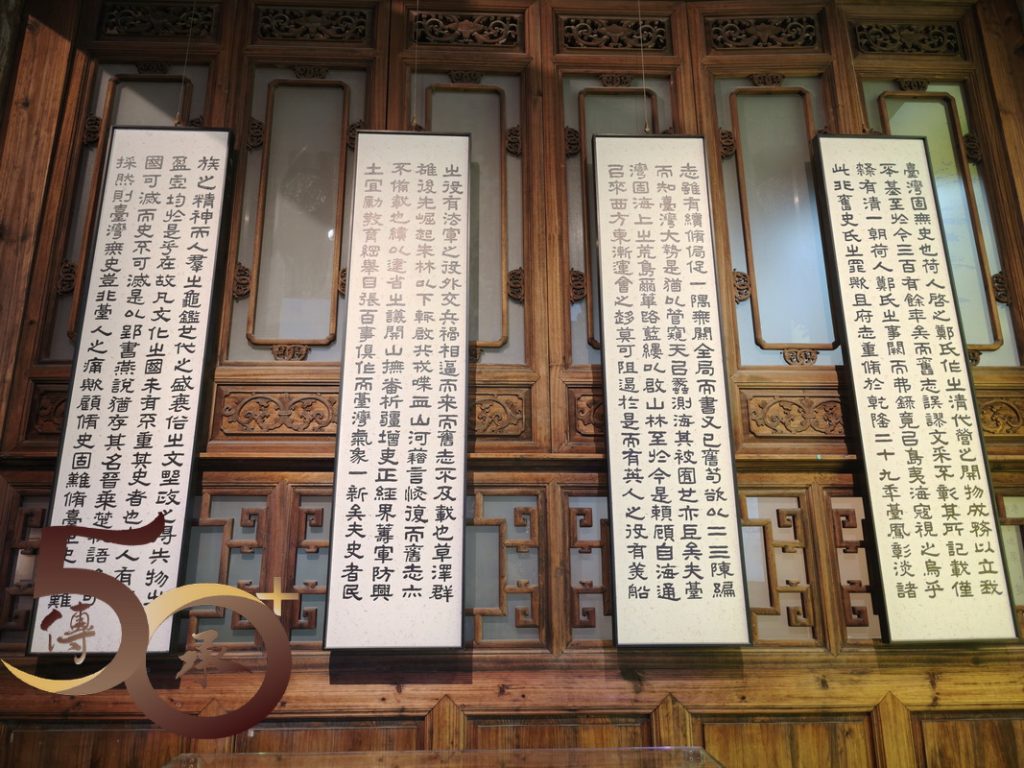 臺灣固無史也荷人啓之鄭氏作之清代營之開物成務以立我
丕基至於今三百有餘年矣而舊志誤謬文采不彰其所記載僅
隸有清一朝荷人鄭氏之事闕而弗錄竟以島夷海寇視之烏乎
此非舊史氏之罪歟且府志重脩於乾隆二十九年臺鳳彰淡諸
志雖有續脩侷促一隅無關全局而書又已舊苟欲以二三陳編
而知臺灣大勢是猶以管窺天以蠡測海其被囿也亦巨矣夫臺
灣固海上之荒島爾篳路藍縷以啟山林至於今是賴顧自海通
以來西方東漸運會之趨莫可阻遏於是而有英人之役有美船
之役有法軍之役外交兵禍相逼而來而舊志不及載也草澤群
雄後先崛起朱林以下輒啟兵戎喋血山河藉言恢復而舊志亦
不備載也續以建省之議開山撫番析疆增吏正經界籌軍防興
土宜勵教育綱舉目張百事俱作而臺灣氣象一新矣夫史者民
族之精神而人羣之龜鑑也代之盛衰俗之文野政之得失物之
盈虛均於是乎在故凡文化之國未有不重其史者也古人有
國可滅而史不可滅是以郢書燕說猶存其名晉乘楚杌語可
採然則臺灣無史豈非臺人之痛歟顧脩史固難脩臺之史難
50+
傳承